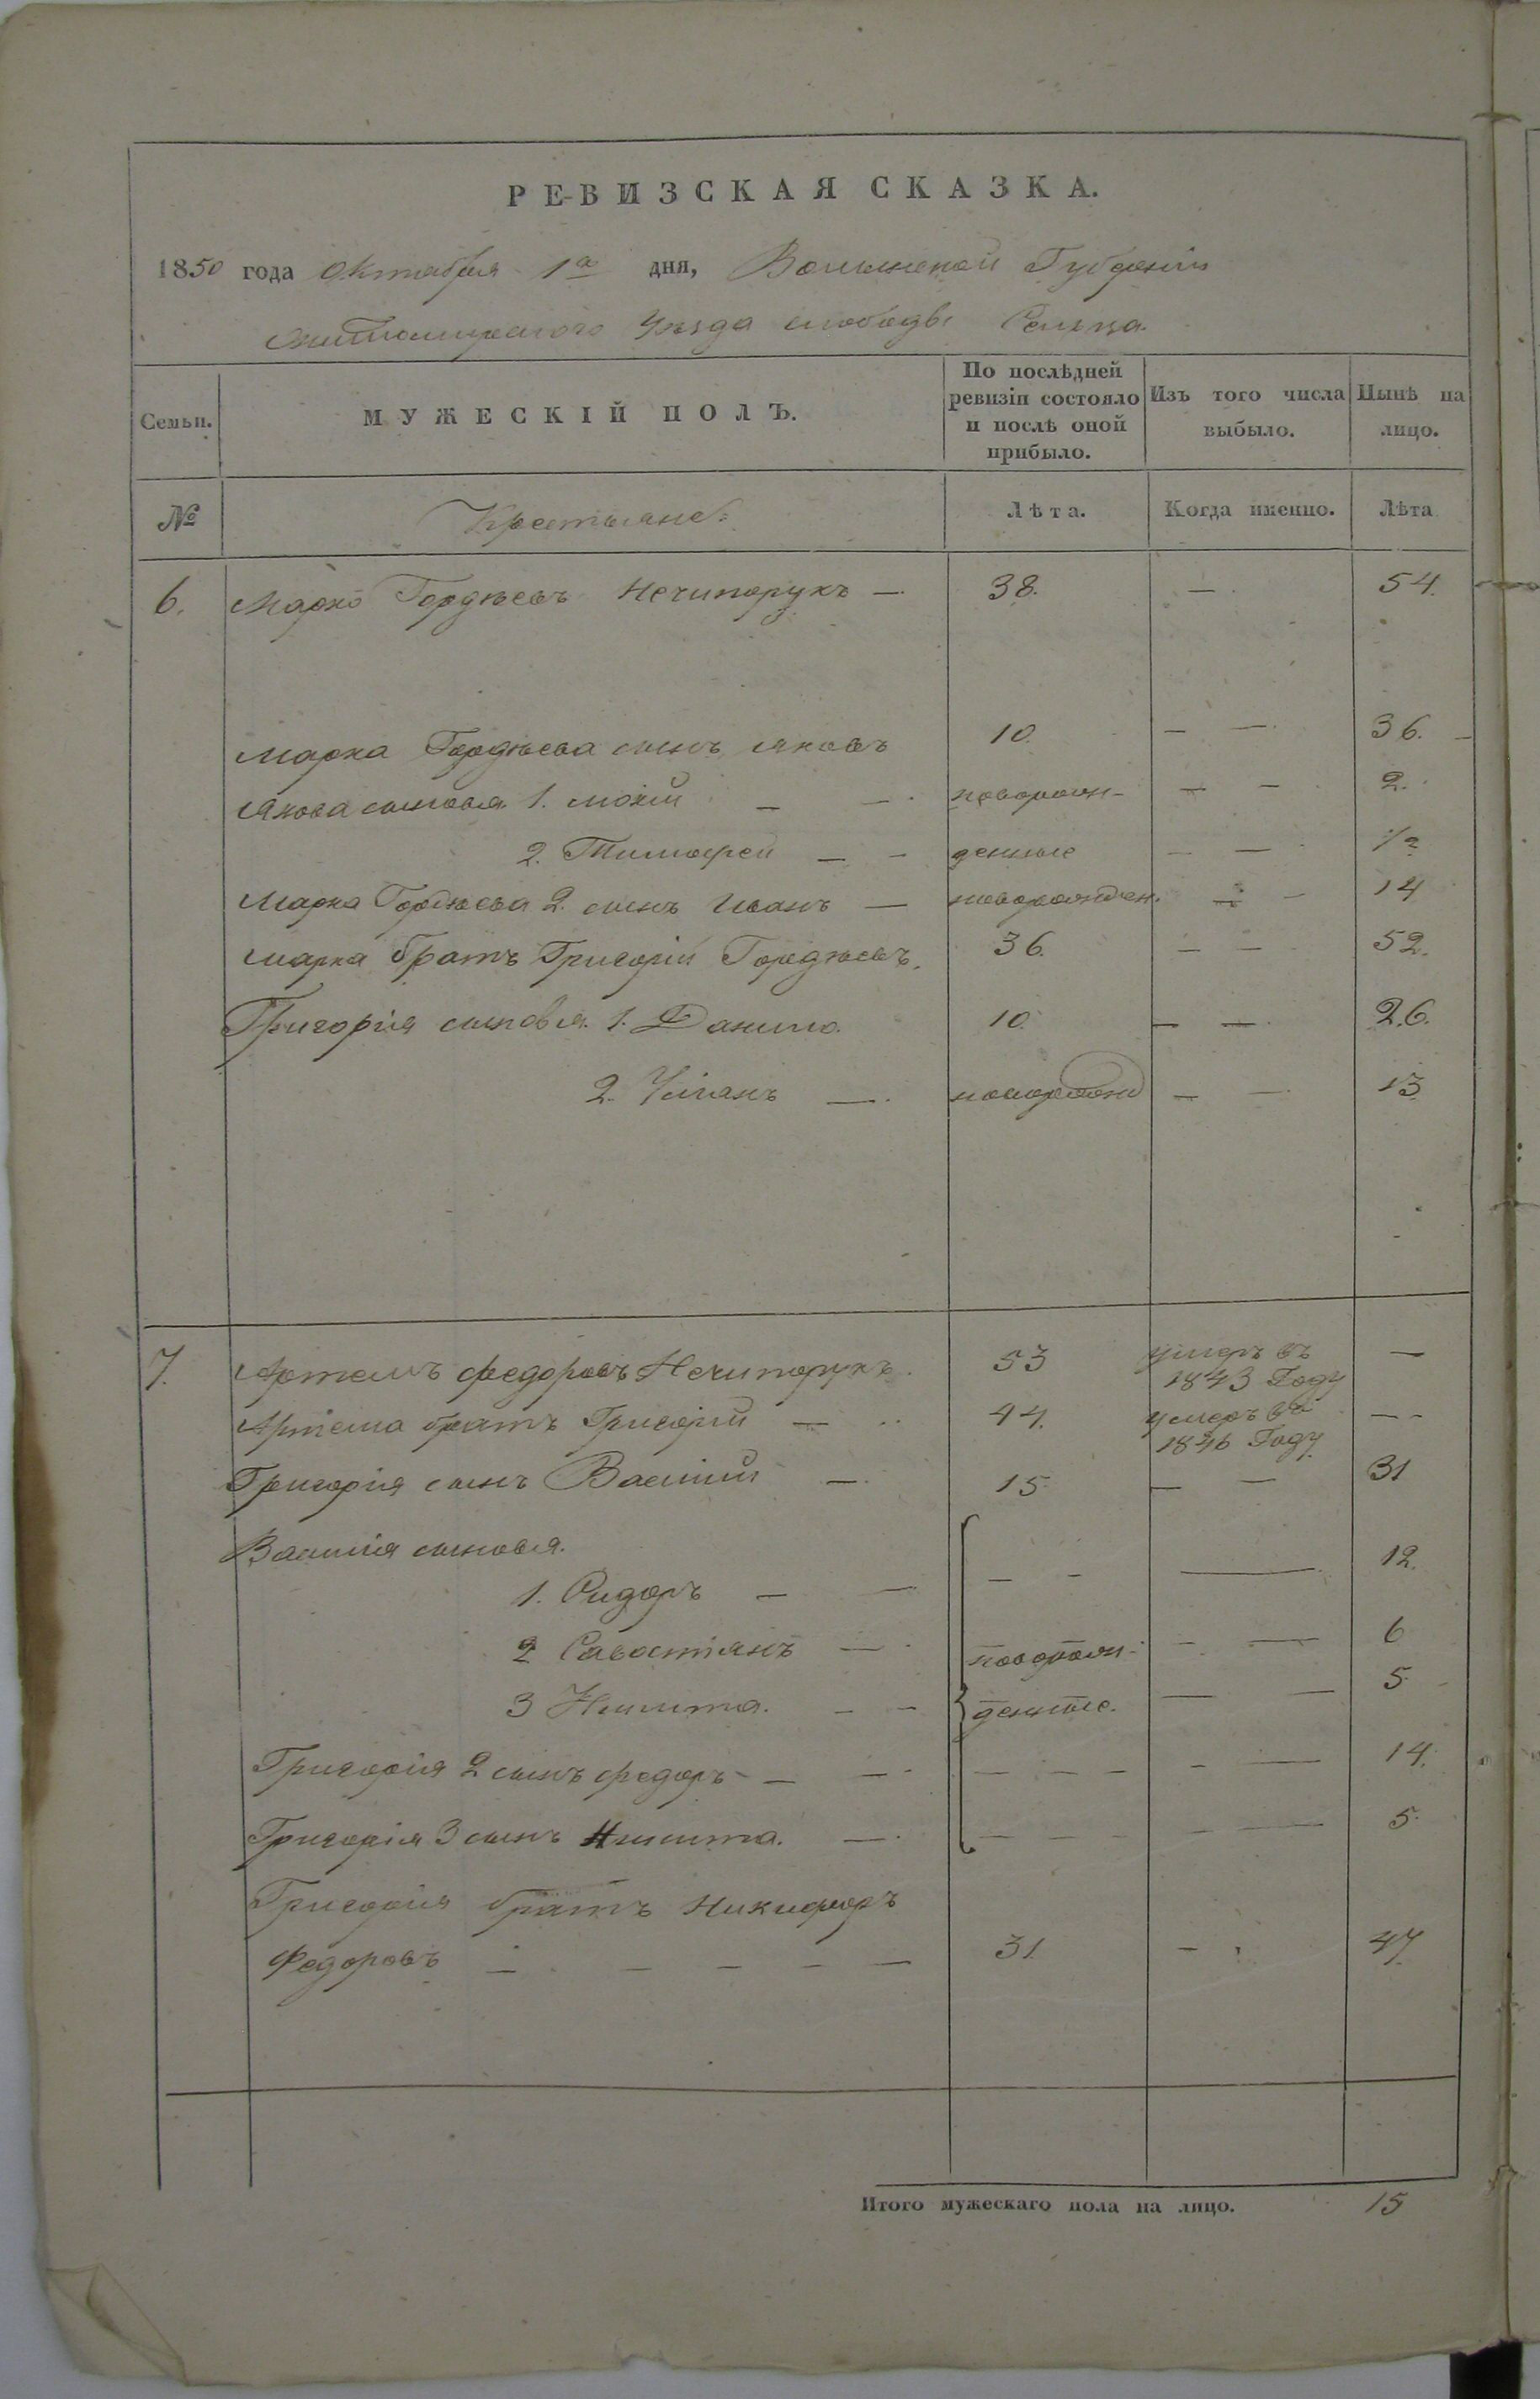 РЕ-ВИЗСКАЯ СКАЗКА.
1850 года Октября 1го дня, Волынской Губерніи
Житомирского Уѣзда слободы Сельца.
Семьи. МУЖЕСКІЙ ПОЛЪ. По послѣдней ревизіи состояло и послѣ оной прибыло. Изъ того числа выбыло. Нынѣ на лицо.
№ Крестьяне: Лѣта. Когда именно. Лѣта
6. Марко Гордѣевъ Нечипорукъ — 38. — 54.
Марка Гордѣева сынъ Яковъ 10. — — 36.
Якова сыновья 1. Мокій — — новорож- — — 2.
2. Тимофей — — денные — — 1/2
Марка Гордѣева 2. сынъ Иванъ — новорожден. — — 14
Марка братъ Григорій Гордѣевъ. 36. — — 52.
Григорія сыновья. 1. Данило. 10. — — 26.
2. Уліянъ — новорожд — — 13
7. Артемъ Федоровъ Нечипорукъ. 53 умеръ въ 1843 Году —
Артема братъ Григорій — 44. умеръ въ 1846 Году — -
Григорія сынъ Василій — 15. — — 31
Василія сыновья.
1. Сидоръ — — — — — 12.
2 Савостіянъ — новорож- — — 6
3 Никита. — — денные. — — 5
Григорія 2 сынъ Федоръ — — — — — — — 14.
Григорія 3 сынъ Никита. — — — — — — 5.
Григорія братъ Никифоръ
Федоровъ — — — — — 31. — 47.
Итого мужескаго пола на лицо. 15